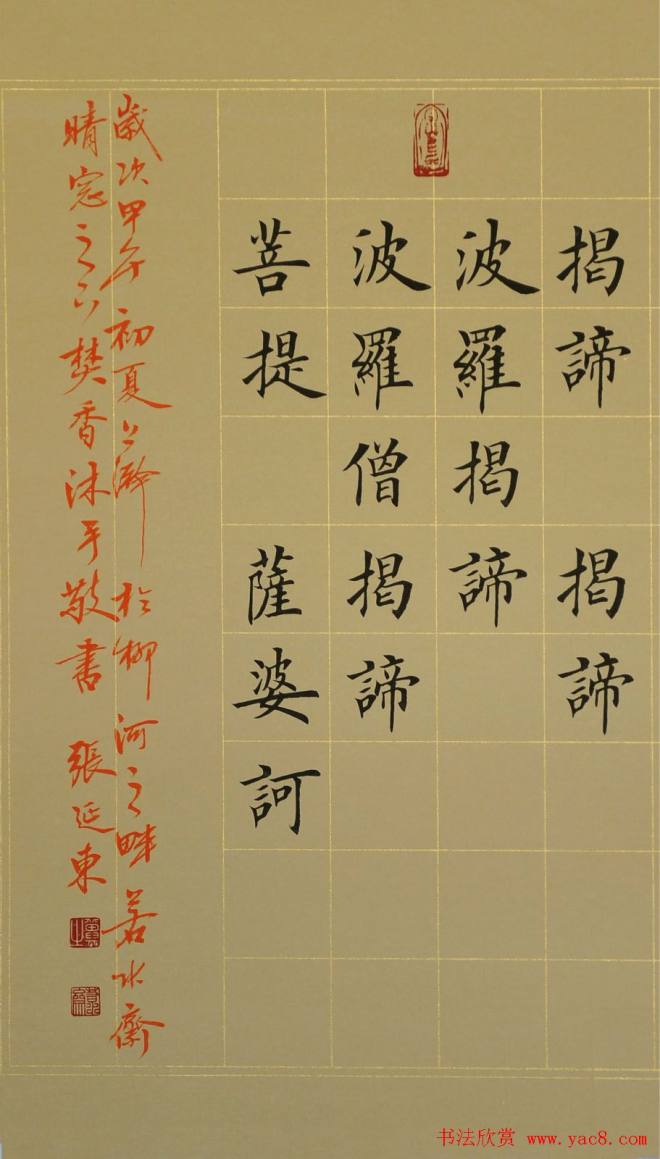 揭諦 揭諦
波羅揭諦
波羅僧揭諦
菩提 薩婆訶
歲次甲午初夏上澣於柳河之畔若水齋
晴窓之下焚香沐手敬書 張延東
书法欣赏 www.yac8.com